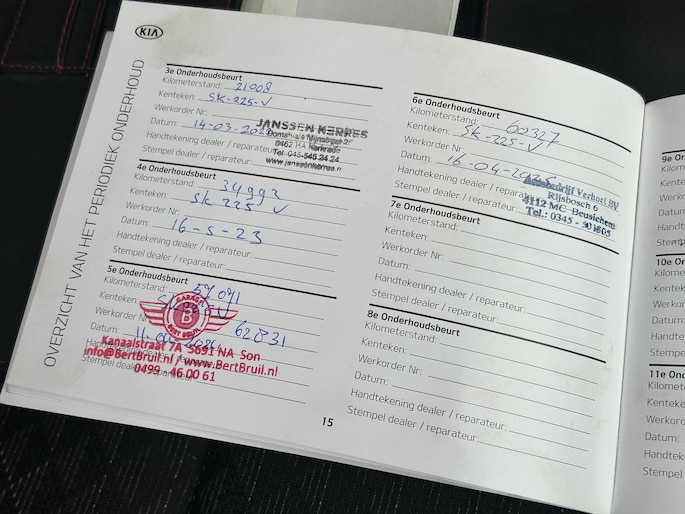 KIA
OVERZICHT VAN HET PERIODIEK ONDERHOUD
3e Onderhoudsbeurt
Kilometerstand: 21008
Kenteken: SK-225-V
Werkorder Nr:
Datum: 14-03-202
Handtekening dealer / reparateur:
Stempel dealer / reparateur:
JANSSEN KERRES
Domaniale Mijnstraat
6462 HA Kerkrade
Tel. 045-545 24 24
www.janssenkerres.nl
4e Onderhoudsbeurt
Kilometerstand: 34992
Kenteken: SK 225 V
Werkorder Nr:
Datum: 16-5-23
Handtekening dealer / reparateur:
Stempel dealer / reparateur:
5e Onderhoudsbeurt
Kilometerstand:
Kenteken:
Werkorder Nr: 62831
Datum: 11
Stempel dealer / reparateur:
GARAGE
B
BERT BRUIL
Kanaalstraat 7A 5691 NA Son
info@BertBruil.nl / www.BertBruil.nl
0499 - 46 00 61
6e Onderhoudsbeurt
Kilometerstand: 60327
Kenteken: SK-225-V
Werkorder Nr:
Datum: 16-04-2025
Handtekening dealer / reparateur:
Stempel dealer / reparateur:
Autobedrijf Verhoef BV
Rijsbosch 6
4112 MC Beusichem
Tel.: 0345 - 501805
7e Onderhoudsbeurt
Kilometerstand:
Kenteken:
Werkorder Nr:
Datum:
Handtekening dealer / reparateur:
Stempel dealer / reparateur:
8e Onderhoudsbeurt
Kilometerstand:
Kenteken:
Werkorder Nr:
Datum:
Handtekening dealer / reparateur:
Stempel dealer / reparateur:
15
9e On
Kilome
Kentek
Werko
Datum
Handt
Stem
10e On
Kilomet
Kenteke
Werkor
Datum:
Handte
Stempe
11e Ond
Kilomete
Kenteken
Werkord
Datum:
Handtek
Stempel